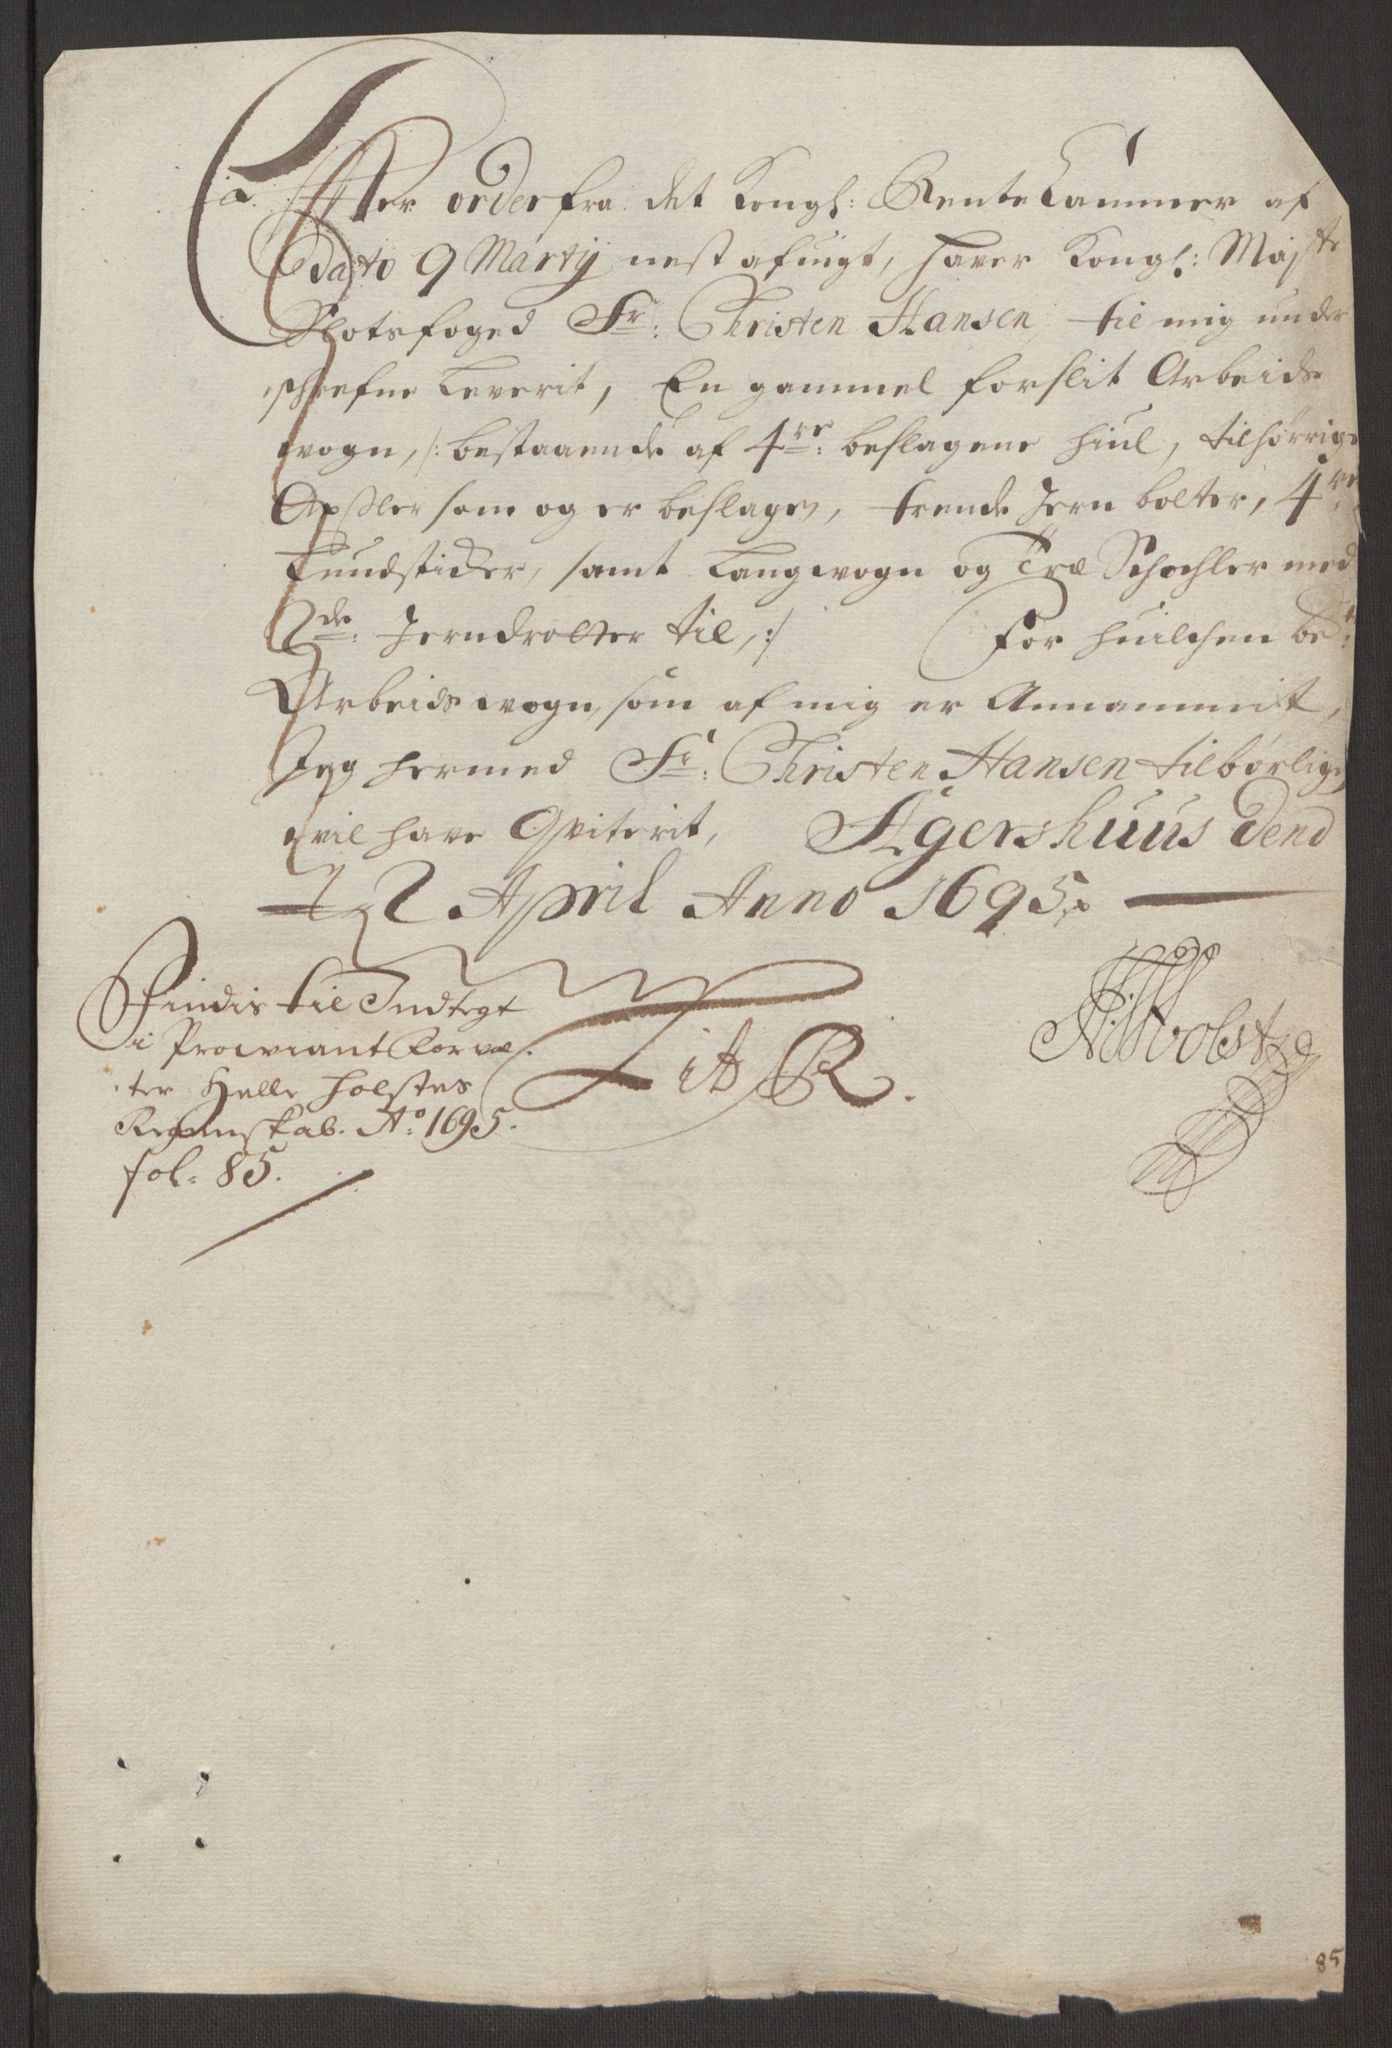 Efter order fra det Kongl: Rente Cammer af
dato 9 Marty nest afuigt, hafver Kongl: Maj.ts
Slotsfoged Sr: Christen Hansen, til mig under
schrefne Leverit, En gammel forslit Arbeids
wogn, /: bestaaende af 4re: beslagene hiul, tilhørrige
Axsler som og er beslagen, trende Jern bolter, 4re
Lundsticker, samt Langwogn og Træ Schochler med
2de: Jerndrolter til, :/ For huilchen be.te:
Arbeids wogn, som af mig er Annammit,
Jeg hermed Sr: Christen Hansen tilbørligen
wil have Qviterit, Agershuus Dend
12 April Anno 1695.
N: Holst
Findis til Indtegt
i Proviant Forval-
ter Helle Holstes
Regenskab. Ao: 1695.
fol: 85.
Lit R.
85